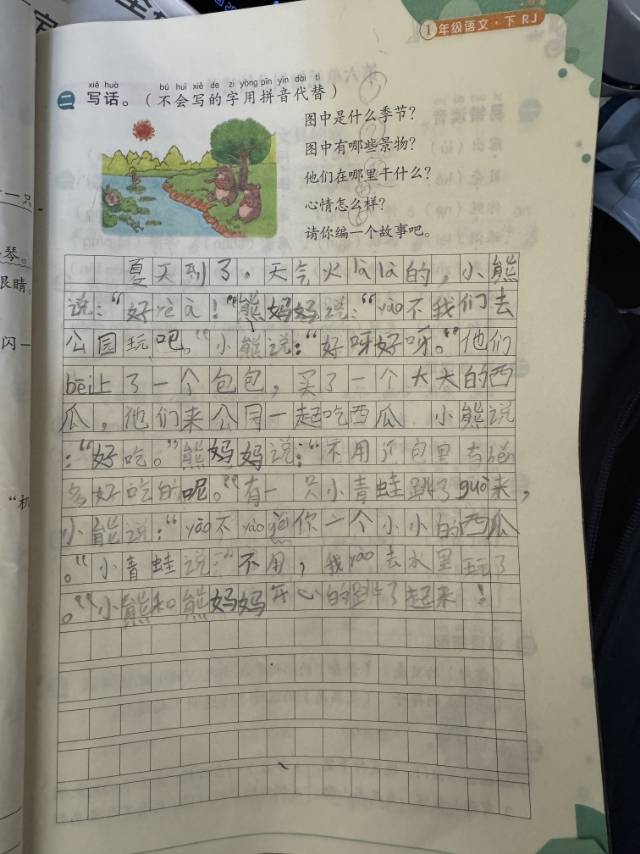 1年级语文·下 RJ
xiě huà bú huì xiě de zì yòng pīn yīn dài tì
二 写话。（不会写的字用拼音代替）
图中是什么季节？
图中有哪些景物？
他们在哪里干什么？
心情怎么样？
请你编一个故事吧。
夏天到了，天气火là là的，小熊
说：“好rè à！”熊妈妈说：“yào不我们去
公园玩吧。”小熊说：“好呀好呀。”他们
bēi上了一个包包，买了一个大大的西
瓜，他们来公园一起吃西瓜 小熊说
：“好吃。”熊妈妈说：“不用 包里有
多好吃的呢。”有一只小青蛙跳了guò来，
小熊说：“yào不yào gěi你一个小小的西瓜
。”小青蛙说：“不用，我yào去水里玩了
。”小熊和熊妈妈开心的跳了起来！
一只
琴。
眼睛。
闪一